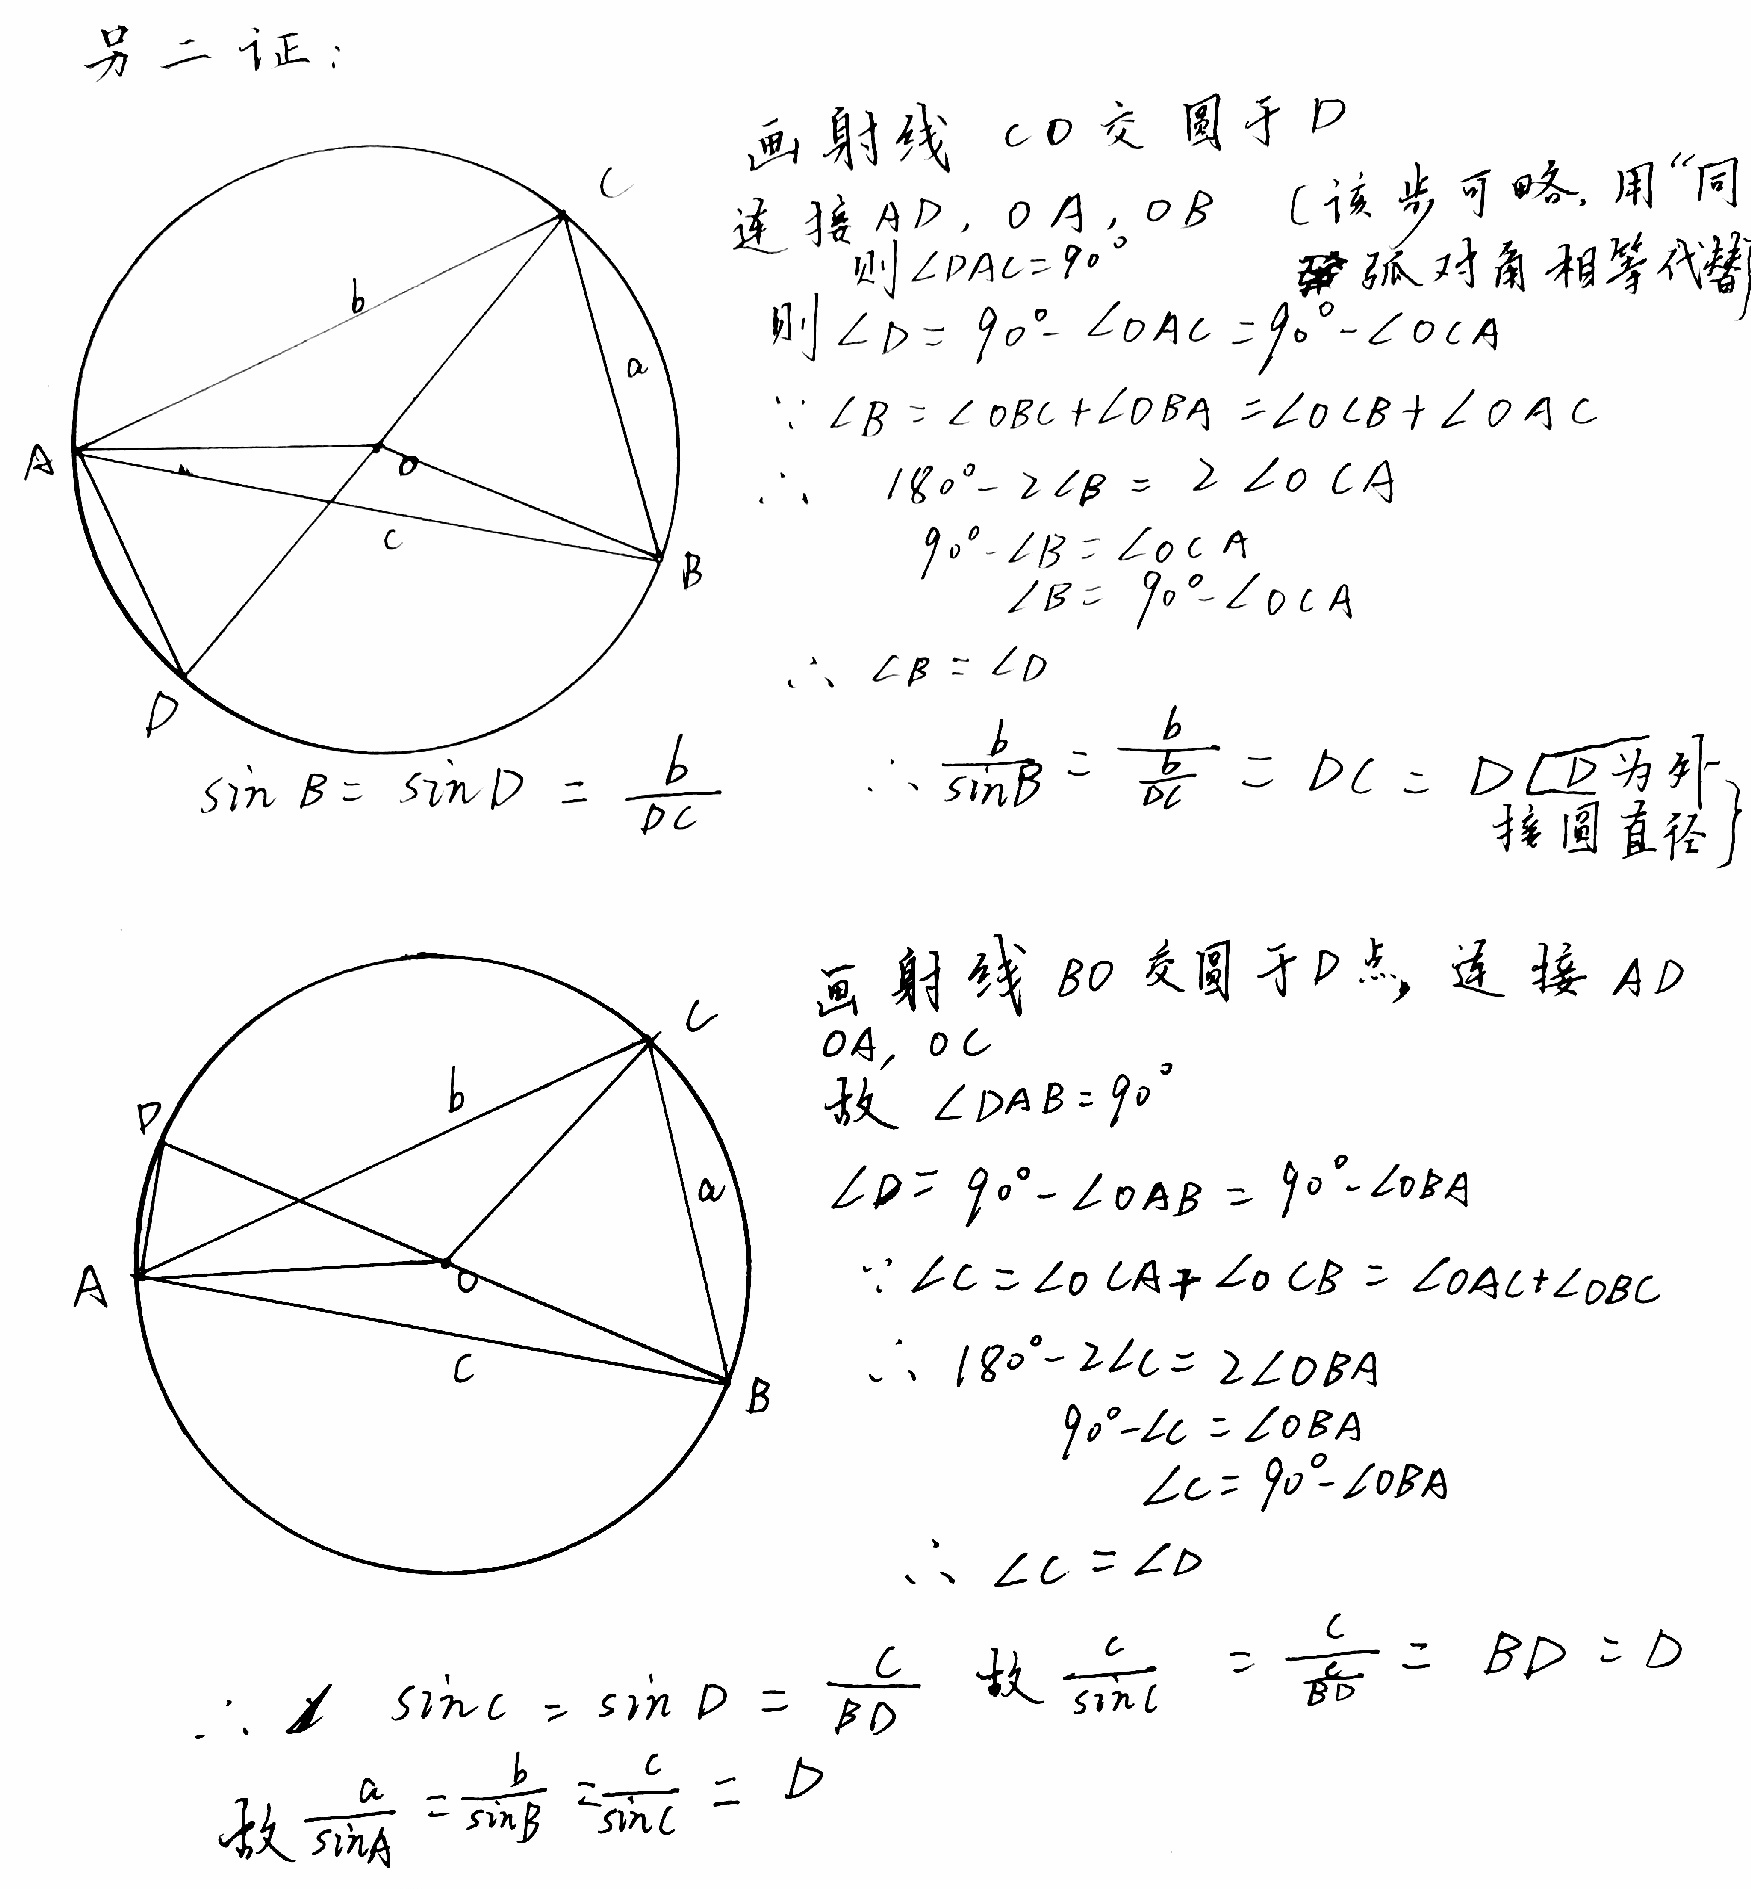 另二证:
画射线 CO交圆于D
连接AD, OA, OB (该步可略,用“同
则∠DAC=90° 弧对角相等代替)
则∠D=90°-∠OAC=90°-∠OCA
∵ ∠B=∠OBC+∠OBA=∠OCB+∠OAC
∴ 180°-2∠B=2∠OCA
90°-∠B=∠OCA
∠B=90°-∠OCA
∴ ∠B=∠D
sinB=sinD=b/DC ∴ b/sinB=b/(b/DC)=DC=D[D为外
接圆直径}
C
b
a
A
O
c
B
D
画射线BO交圆于D点, 连接AD
OA, OC
故 ∠DAB=90°
∠D=90°-∠OAB=90°-∠OBA
∵ ∠C=∠OCA+∠OCB=∠OAC+∠OBC
∴ 180°-2∠C=2∠OBA
90°-∠C=∠OBA
∠C=90°-∠OBA
∴ ∠C=∠D
C
b
D
a
A
O
c
B
∴ sinC=sinD=c/BD 故 c/sinC=c/(c/BD)=BD=D
故 a/sinA=b/sinB=c/sinC=D